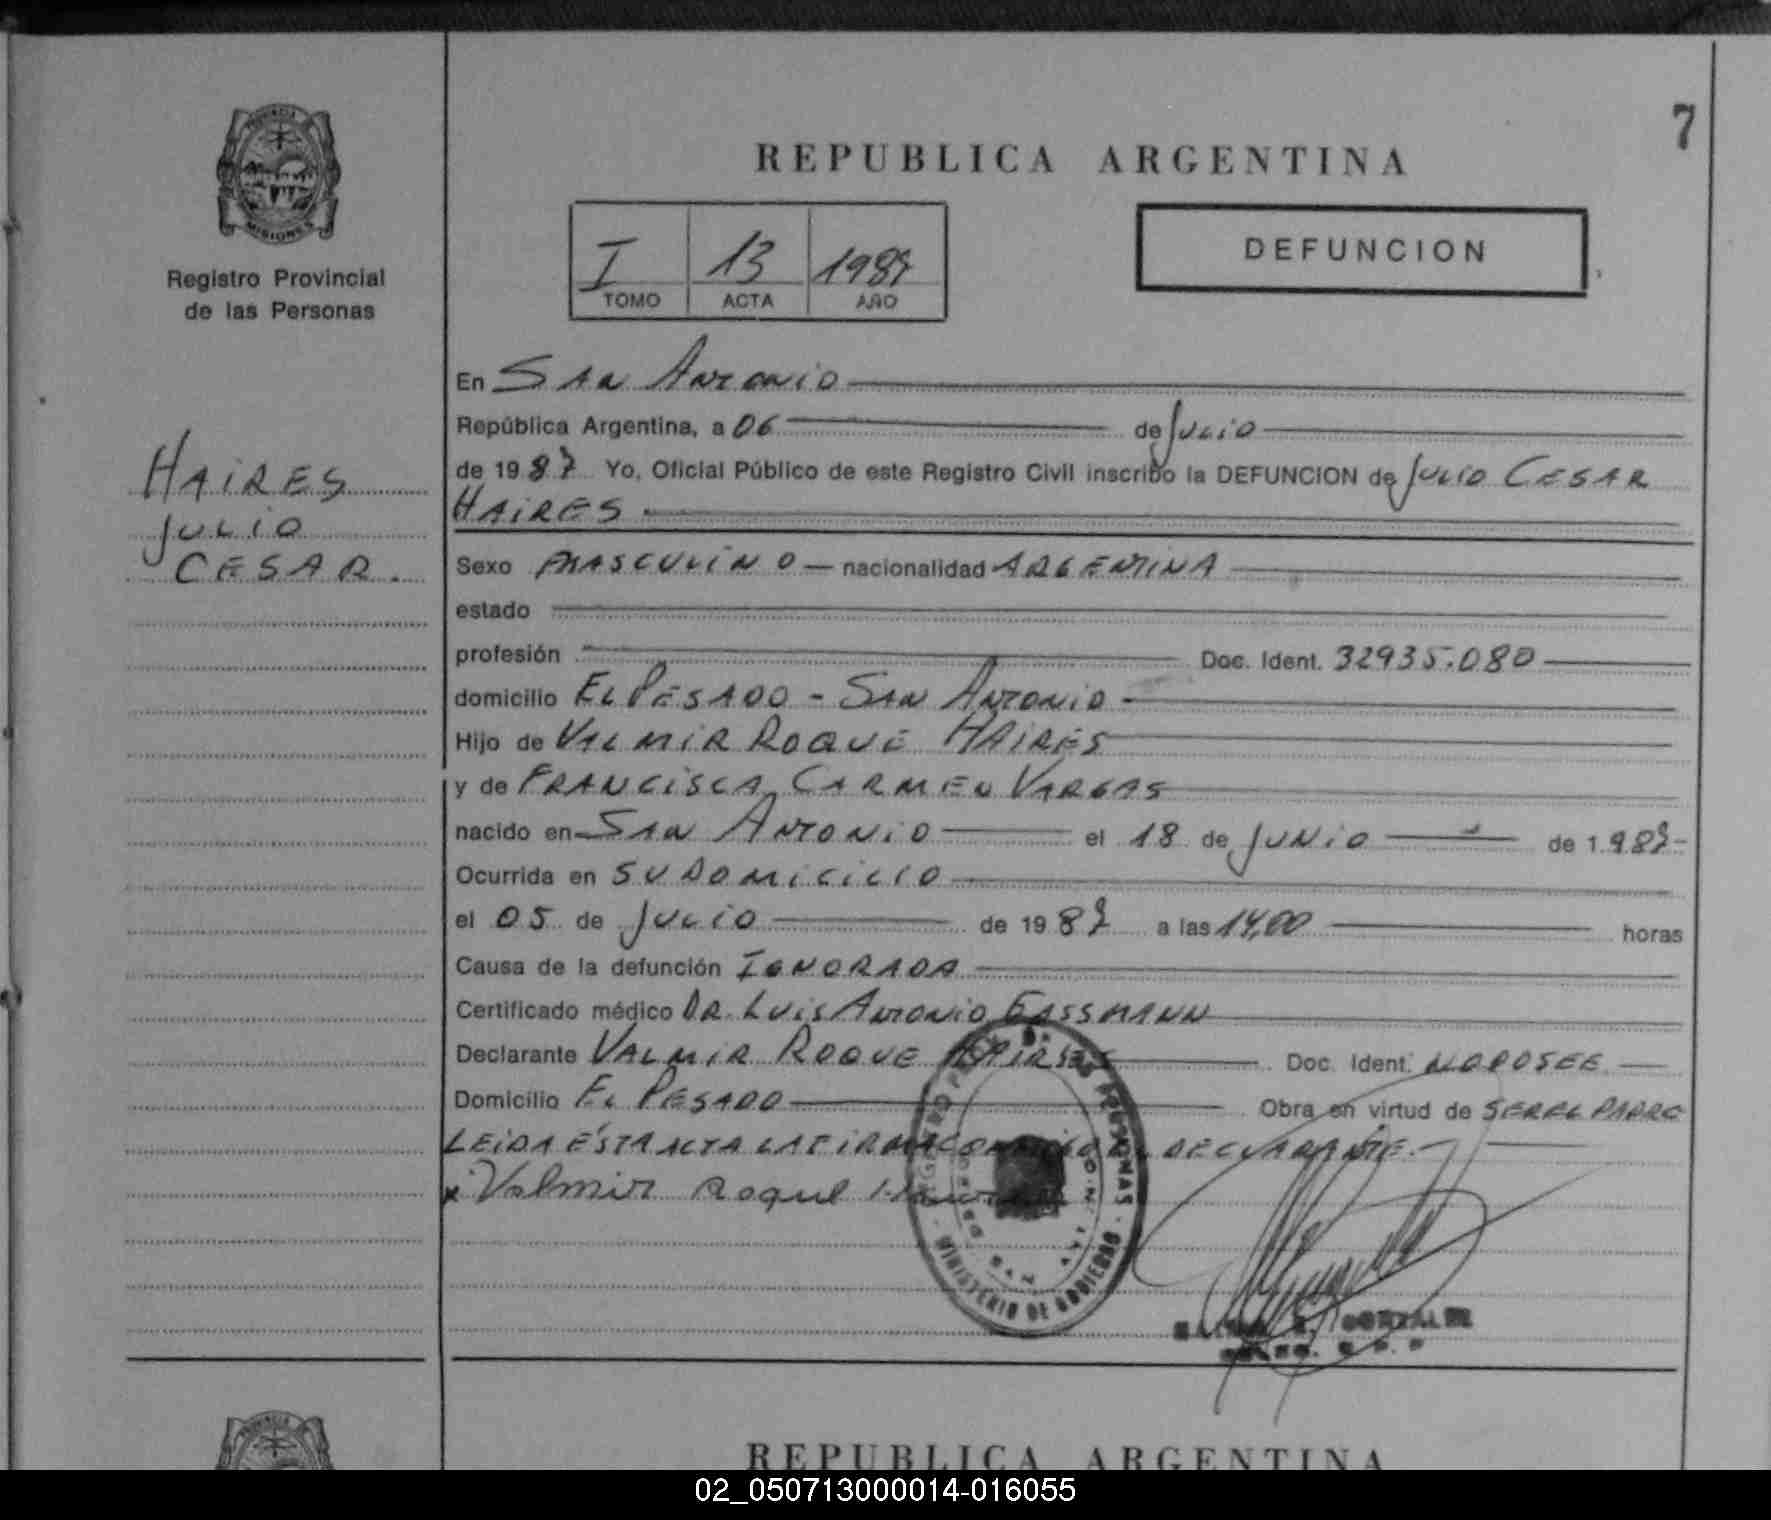 7
PROVINCIA
MISIONES
Registro Provincial
de las Personas
REPUBLICA ARGENTINA
I 13 1987
TOMO ACTA AÑO
DEFUNCION
HAIRES
JULIO
CESAR.
En SAN ANTONIO
República Argentina, a 06 de JULIO
de 1987 Yo, Oficial Público de este Registro Civil inscribo la DEFUNCION de JULIO CESAR
HAIRES
Sexo MASCULINO nacionalidad ARGENTINA
estado
profesión Doc. Ident. 32935.080
domicilio EL PESADO - SAN ANTONIO
Hijo de VALMIR ROQUE HAIRES
y de FRANCISCA CARMEN VARGAS
nacido en SAN ANTONIO el 18 de JUNIO de 1.987
Ocurrida en SU DOMICILIO
el 05 de JULIO de 1987 a las 14,00 horas
Causa de la defunción IGNORADA
Certificado médico DR. LUIS ANTONIO GASSMANN
Declarante VALMIR ROQUE HAIRES Doc. Ident. NO POSEE
Domicilio EL PESADO Obra en virtud de SER EL PADRE
LEIDA ESTA ACTA LA FIRMA CONMIGO EL DECLARANTE.
x Valmir Roque
PERSONAS
MINISTERIO DE GOBIERNO
GONZALEZ
REPUBLICA ARGENTINA
PROVINCIA
02_050713000014-016055